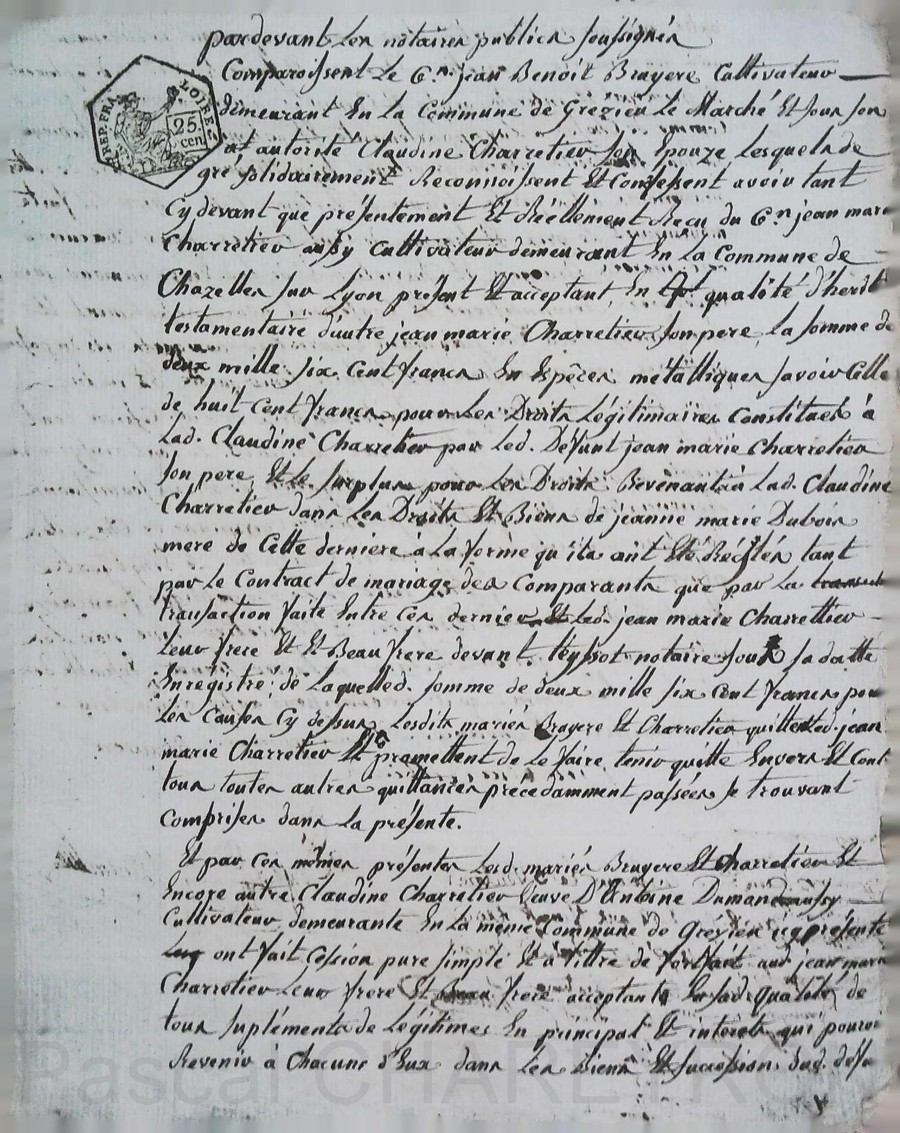 pardevant Les notaires publics soussignés
Comparoissent Le Cn. jean Benoit Bruyere Cultivateur
REP. FRA.
LOIRE
25
cen
demeurant En La Commune de Grézieu Le Marché Et sous son
at autorité Claudine Charretier son Epouze Lesquels de
gré solidairement Reconnoissent Et Confessent avoir tant
Cy devant que présentement Et Réellement Recu du Cn jean mari
Charretier aussy Cultivateur demeurant En La Commune de
Chazelles sur Lyon présent Et acceptant, En qualité d'herit
testamentaire d'autre jean marie Charretier son pere, La somme de
deux mille six Cent francs En Espèces métalliques savoir Celle
de huit Cent francs pour Les Droits Légitimaires Constitués à
Lad. Claudine Charretier par Led. Défunt jean marie Charretier
son pere, Et Le surplus pour Les Droits Revenants à Lad. Claudine
Charretier dans Les Droits Et Biens de jeanne marie Dubois
mere de Cette derniere à La forme qu'ils ont Eté Réglés tant
par Le Contract de mariage des Comparants que par La
transaction faite Entre Ces derniers Et Led. jean marie Charrettier
Leur frere Et Et Beau frere devant notaire sous sa datte
Enregistré; de Laquelled. somme de deux mille six Cent francs pour
Les Causes Cy dessus, Lesdits mariés Bruyere Et Charretier quittent Led. jean
marie Charretier Et promettent de Le faire tenir quitte Envers Et Cont
tous toutes autres quittances précédamment passées se trouvant
Comprises dans La présente.
Et par Ces mêmes présentes Lesd. mariés Bruyere Et Charretier Et
Encore autre Claudine Charretier Veuve D'Antoine Dumand aussy
Cultivateur demeurante En La même Commune de Grézieu icy présente
ont fait Cession pure simple Et à tittre de forfait aud jean marie
Charretier Leur frere Et Beau frere acceptant En sad. qualité, de
tous supléments de Légitimes En principal Et intérêts qui pourroi
Revenir à Chacune d'Eux dans Les Biens Et succession dud. défu
Pascal CHARRETIER